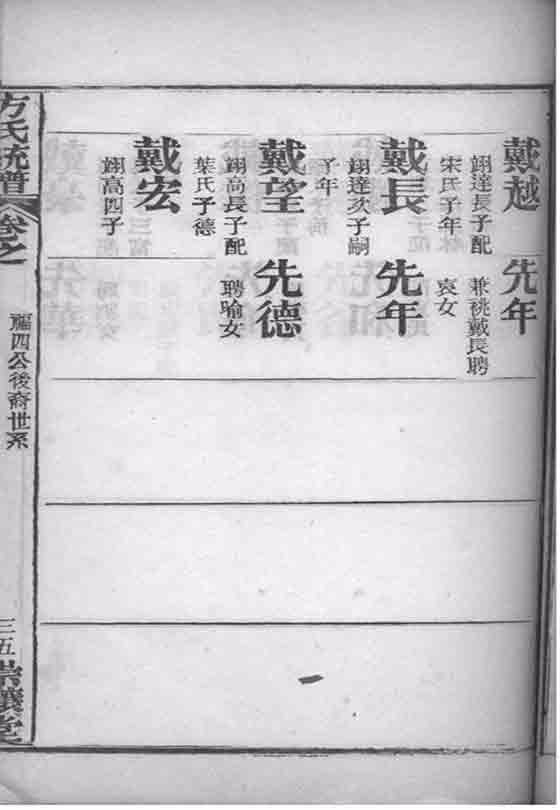 戴越
翊達長子配
宋氏子年
先年
兼祧戴長聘
袁女
戴長
翊達次子嗣
子年
先年
戴望
翊高長子配
葉氏子德
先德
聘喻女
戴宏
翊高四子
方氏統譜
卷之一
福四公後裔世系
三五
崇讓堂